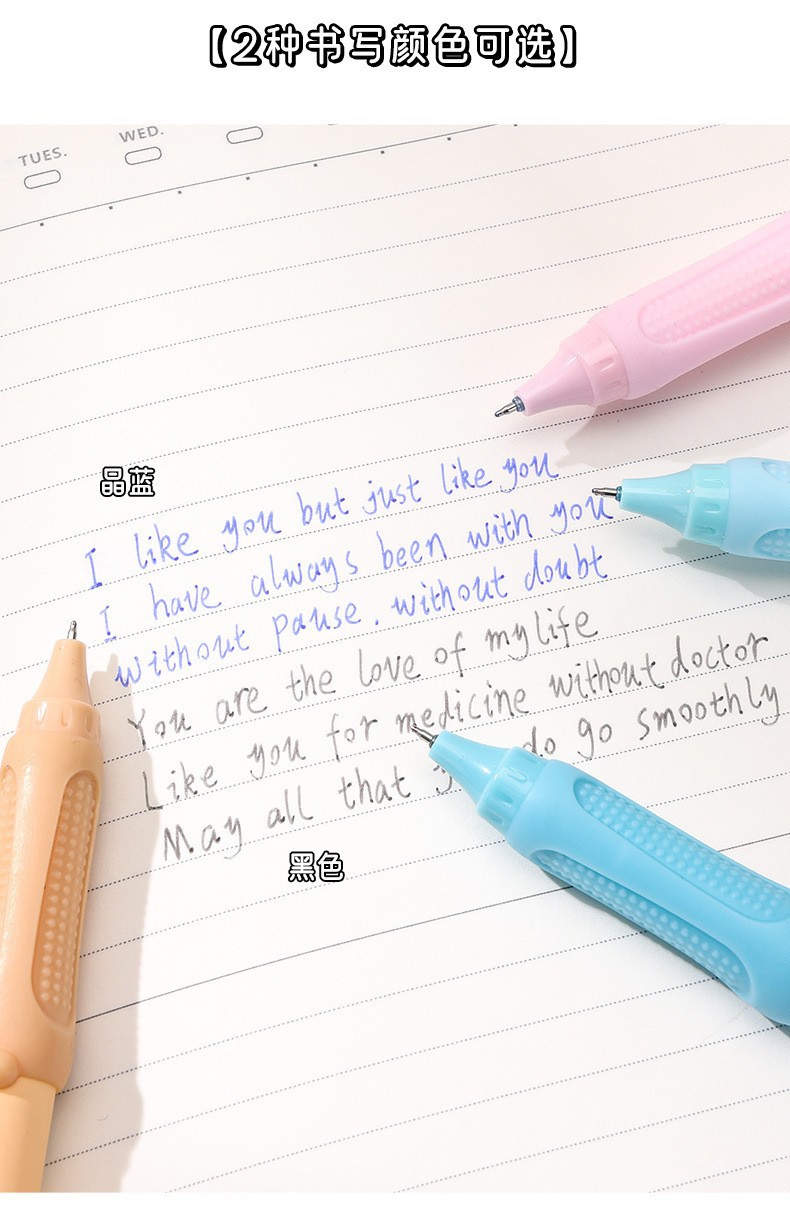 【2种书写颜色可选】
TUES.
WED.
晶蓝
I like you but just like you
I have always been with you
without pause. without doubt
You are the love of my life
Like you for medicine without doctor
May all that do go smoothly
黑色